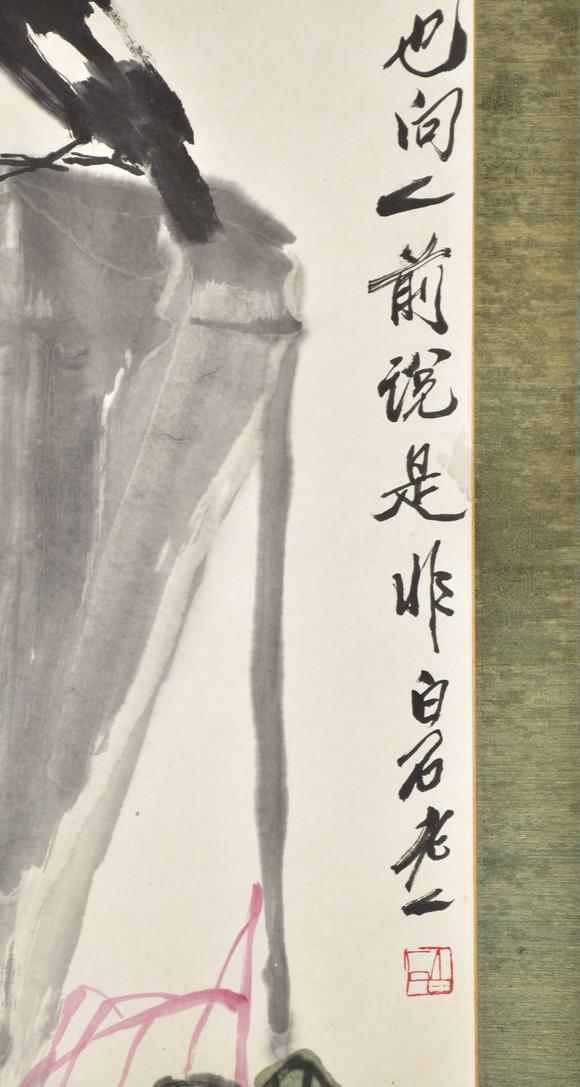 也向人前說是非白石老人